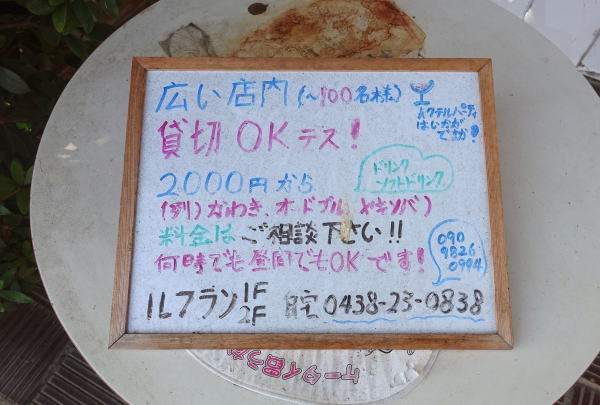 広い店内(〜100名様)
カクテルパーティ
はいかが
ですか!
貸切OKデス!
ドリンク
ソフトドリンク
2000円から
(例)なわき、オードブル、ヤキソバ)
料金はご相談下さい!!
何時でも昼間でもOKです!
090
9826
0994
ルフラン1F
2F
自宅0438-23-0838